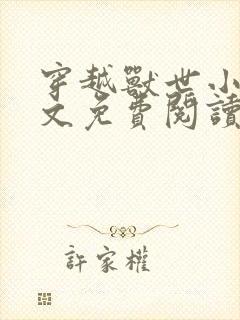 穿越獸世小
文免費閱讀
許家權